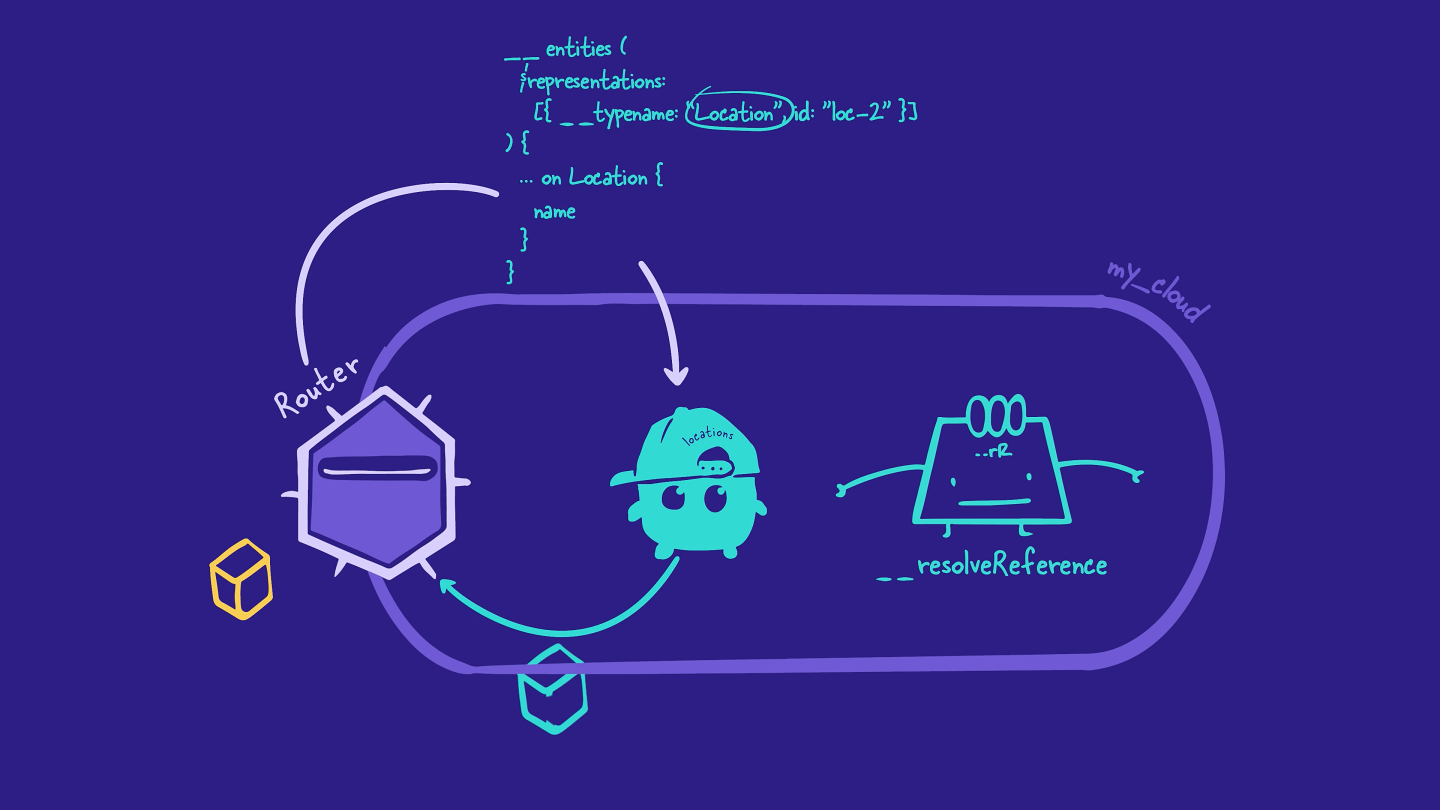 __ entities (
representations:
[{ __typename: "Location", id: "loc-2" }]
) {
... on Location {
name
}
}
my_cloud
Router
locations
--rR
__resolveReference